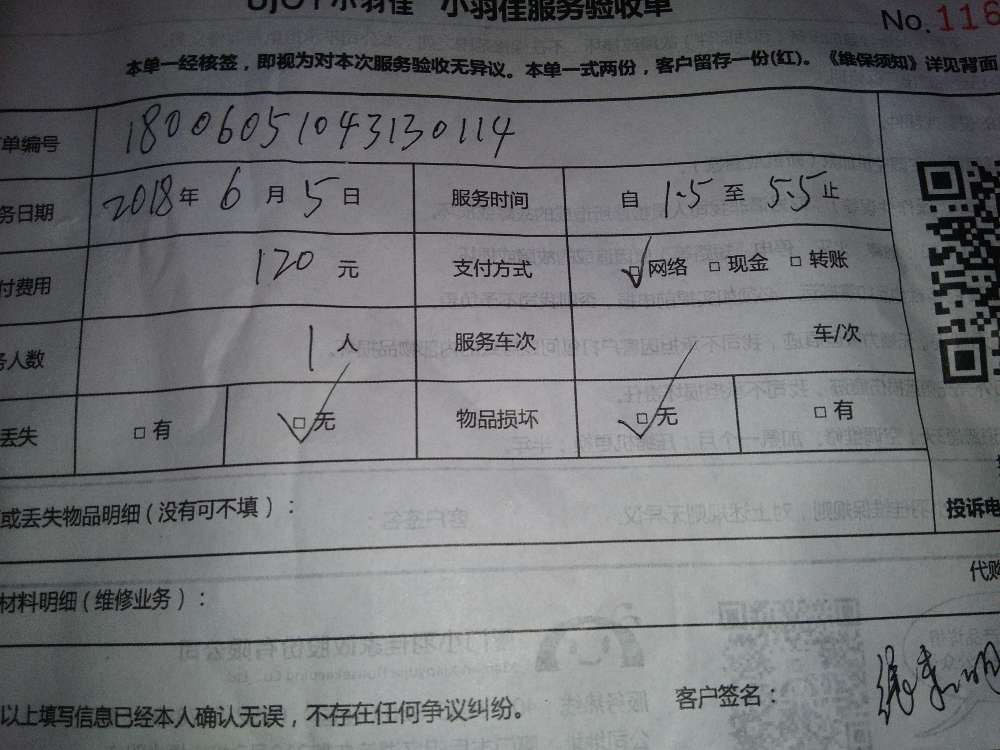 小羽佳 小羽佳服务验收单
No.116
本单一经核签，即视为对本次服务验收无异议。本单一式两份，客户留存一份(红)。《维保须知》详见背面
单编号 18006051043130114
务日期 2018年 6月 5日 服务时间 自 1.5 至 5.5 止
付费用 120 元 支付方式 □网络 □现金 □转账
务人数 1 人 服务车次 车/次
丢失 □有 □无 物品损坏 □无 □有
或丢失物品明细(没有可不填)：
投诉电
代购
材料明细(维修业务)：
以上填写信息已经本人确认无误，不存在任何争议纠纷。
客户签名：